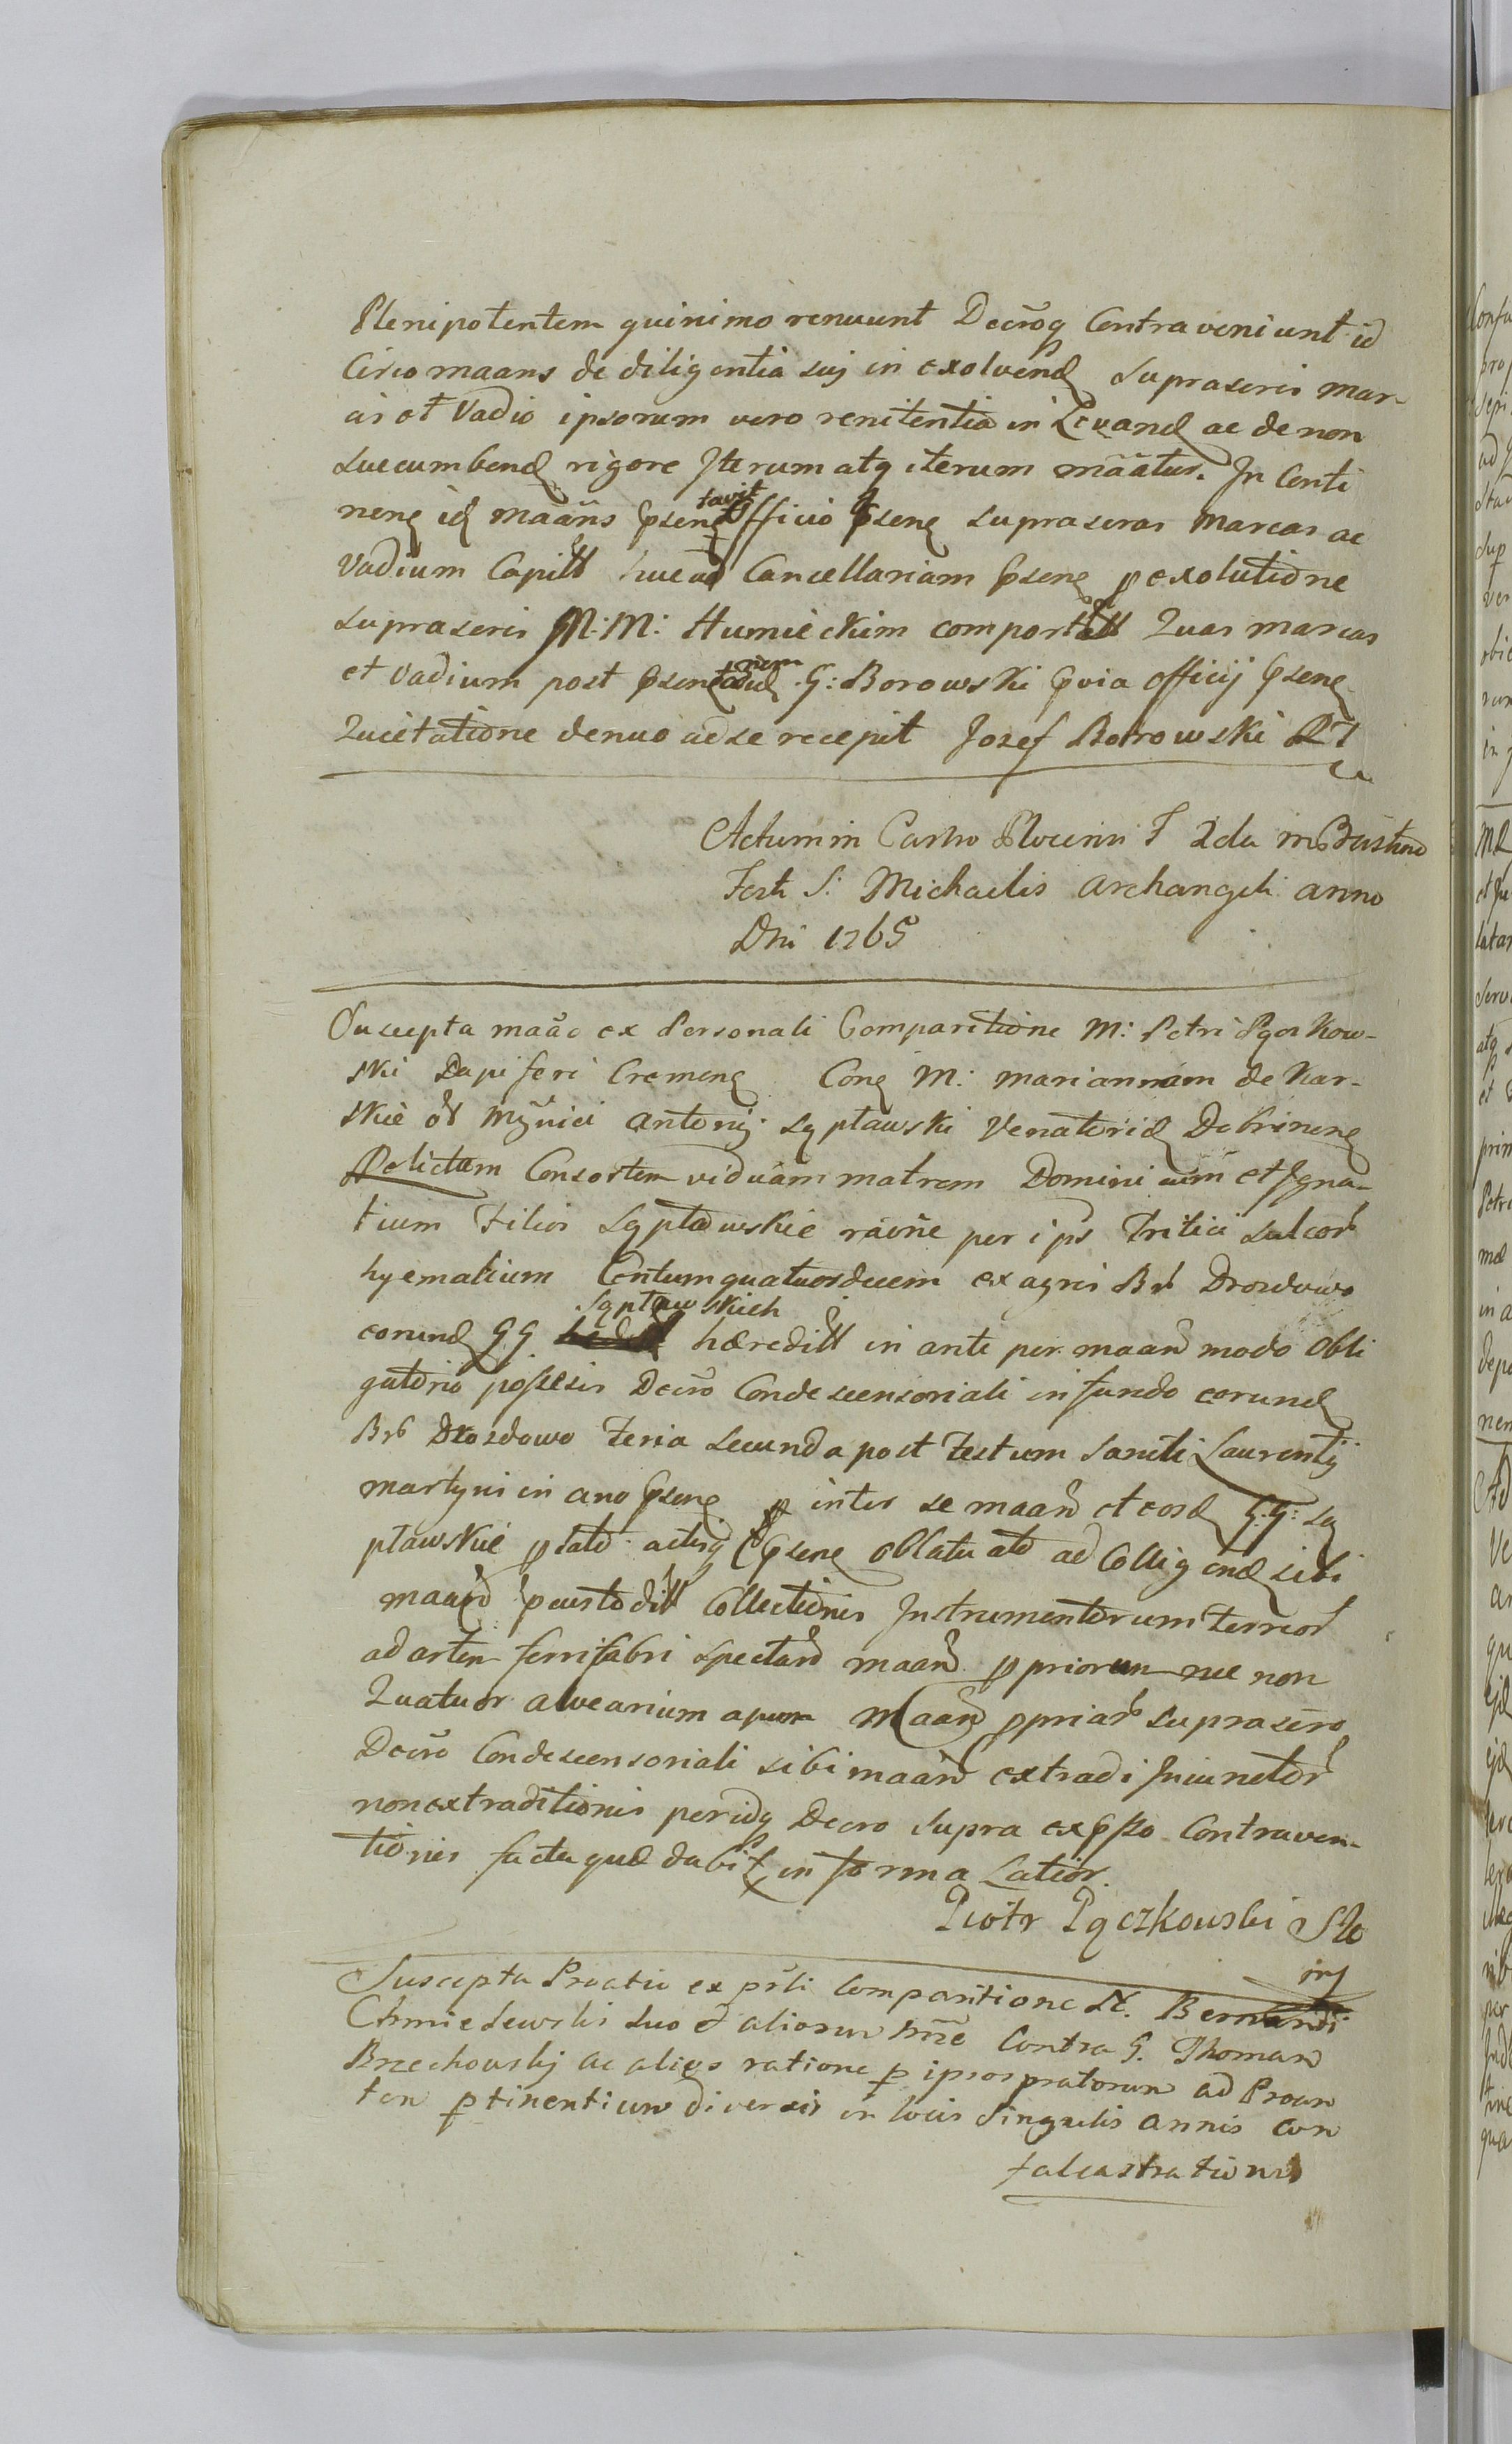 Plenipotentem quinimo renuunt Decroq Contraveniunt id
Circo maans de diligentia sui in exolvend suprascris mar-
cis et Vadio ipsorum vero renitentia in Levand ac de non
succumbend rigore Iterum atq iterum maatur. In Conti
neng id maans psentavit Officio psene suprascras Marcas ac
Vadium Capitt huc ad Cancellariam psene p exolutione
suprascris M: M: Humieckim comportatt Quas marcas
et Vadium post psentaonem G: Borowski pvia Officij psene
Quietatione denuo ad se recepit Jozef Borowski RJ
Actum in Castro Plocensi F 2da in Crastino
Festi S: Michaelis Archangeli anno
Dni 1765
Suscepta maae ex Personali Comparitione M: Petri Pączkow-
ski Dapiferi Cremene Cong M: Mariannam de Kar-
skie ol Mgnici Antonij Lgptawski Venatorid Dobrinene
Relictam Consortem viduam matrem Dominicum et Igna-
tium Filios Lgptawskie raone per ips Tritici sulcor
hyemalium Centum quatuordecem ex agris Br Drozdowo
eorund G G Lgptawskich hæreditt in ante per maand modo Obli
gatorio possessis Decro Condescensoriali in fundo eorund
Br Drozdowo Feria secunda post Festum Sancti Laurentij
martyris in ano psene p inter se maand et eosd G: G: Lg
ptawskie plato actisq psene oblatu ato ad Collig end sibi
maand pcustoditt Collectionis Instrumentorum Ferreor
ad artem ferrifabri spectand maand ppriorum nec non
Quatuor alvearium apum Maand ppriar suprascro
Decro Condescensoriali sibi maand extradi Iniunctor
non extraditionis peridq Decro supra expsso Contraven-
tionis facta quæ dabit in forma Latior.
Piotr Pączkowski Sto
mp
Suscepta Prostio ex psli Comparitione N. Bernardi
Chmielewski suo et aliorum nne Contra G. Thomam
Brzechowski ac alios ratione p ipsos pratorum ad Proan
ten ptinentium diversis in locis singulis annis con
falcastrationis